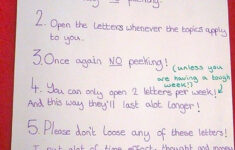 NO peeking.
2. Open the letters whenever the topics apply
to you.
3. Once again NO peeking! (unless you
are having a tough
week!)
4. You can only open 2 letters per week!
And this way they'll last alot longer!
5. Please don't loose any of these letters!
I put alot of time effort, thought and money